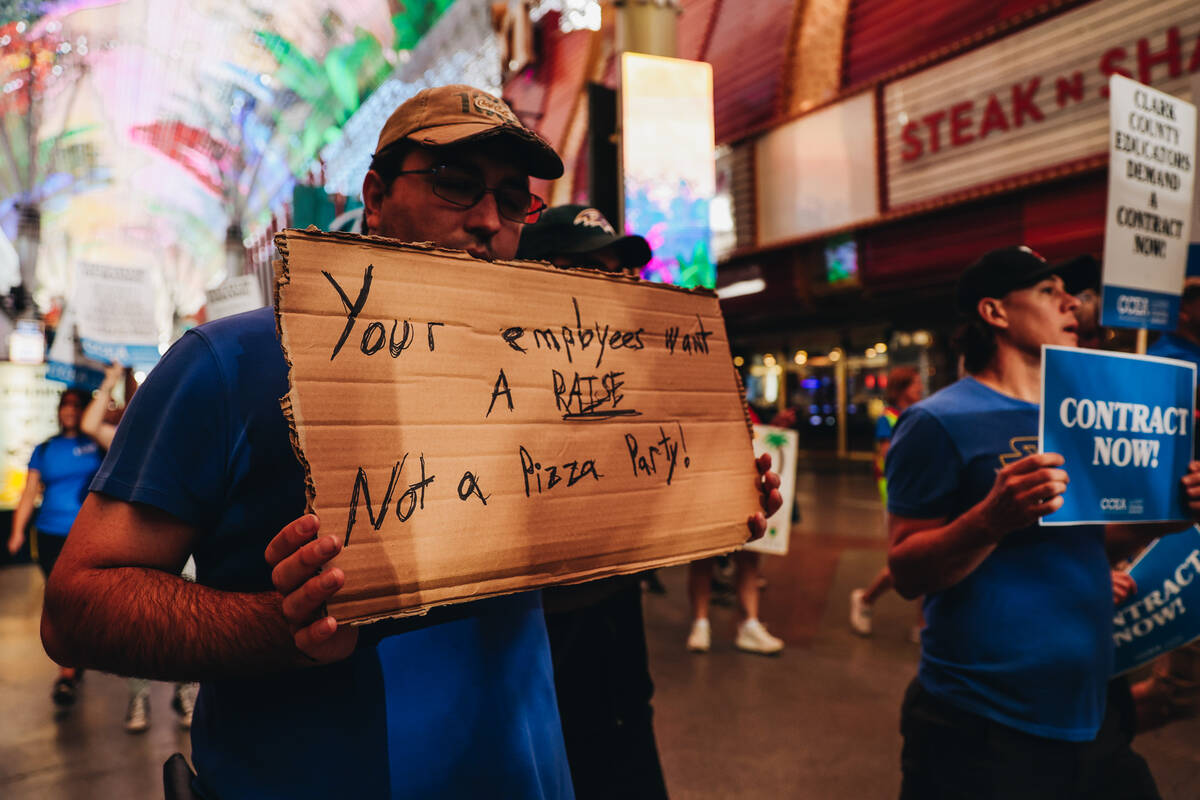 Your employees want
A RAISE
Not a Pizza Party!
STEAK N SHA
CLARK
COUNTY
EDUCATORS
DEMAND
A
CONTRACT
NOW!
CCEA
CONTRACT
NOW!
CCEA
NTRACT
NOW!